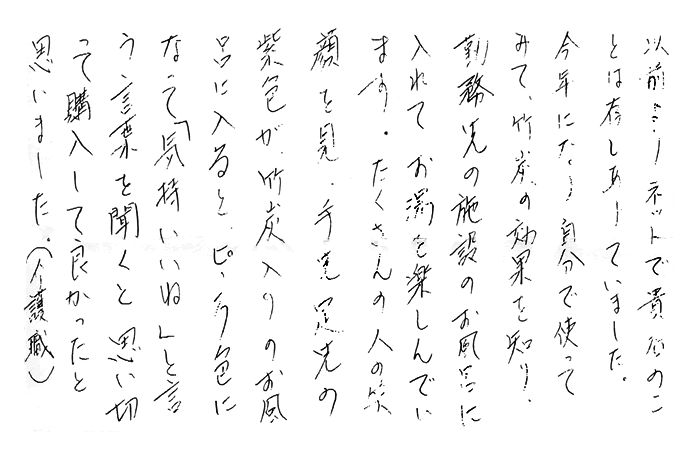 以前よりネットで貴店のこ
とは存じあげていました。
今年になり自分で使って
みて、竹炭の効果を知り、
勤務先の施設のお風呂に
入れてお湯を楽しんでい
ます。たくさんの人の笑
顔を見、手先足先の
紫色が、竹炭入りのお風
呂に入ると、ピンク色に
なって「気持いいね」と言
う言葉を聞くと思い切
って購入して良かったと
思いました。(介護職)